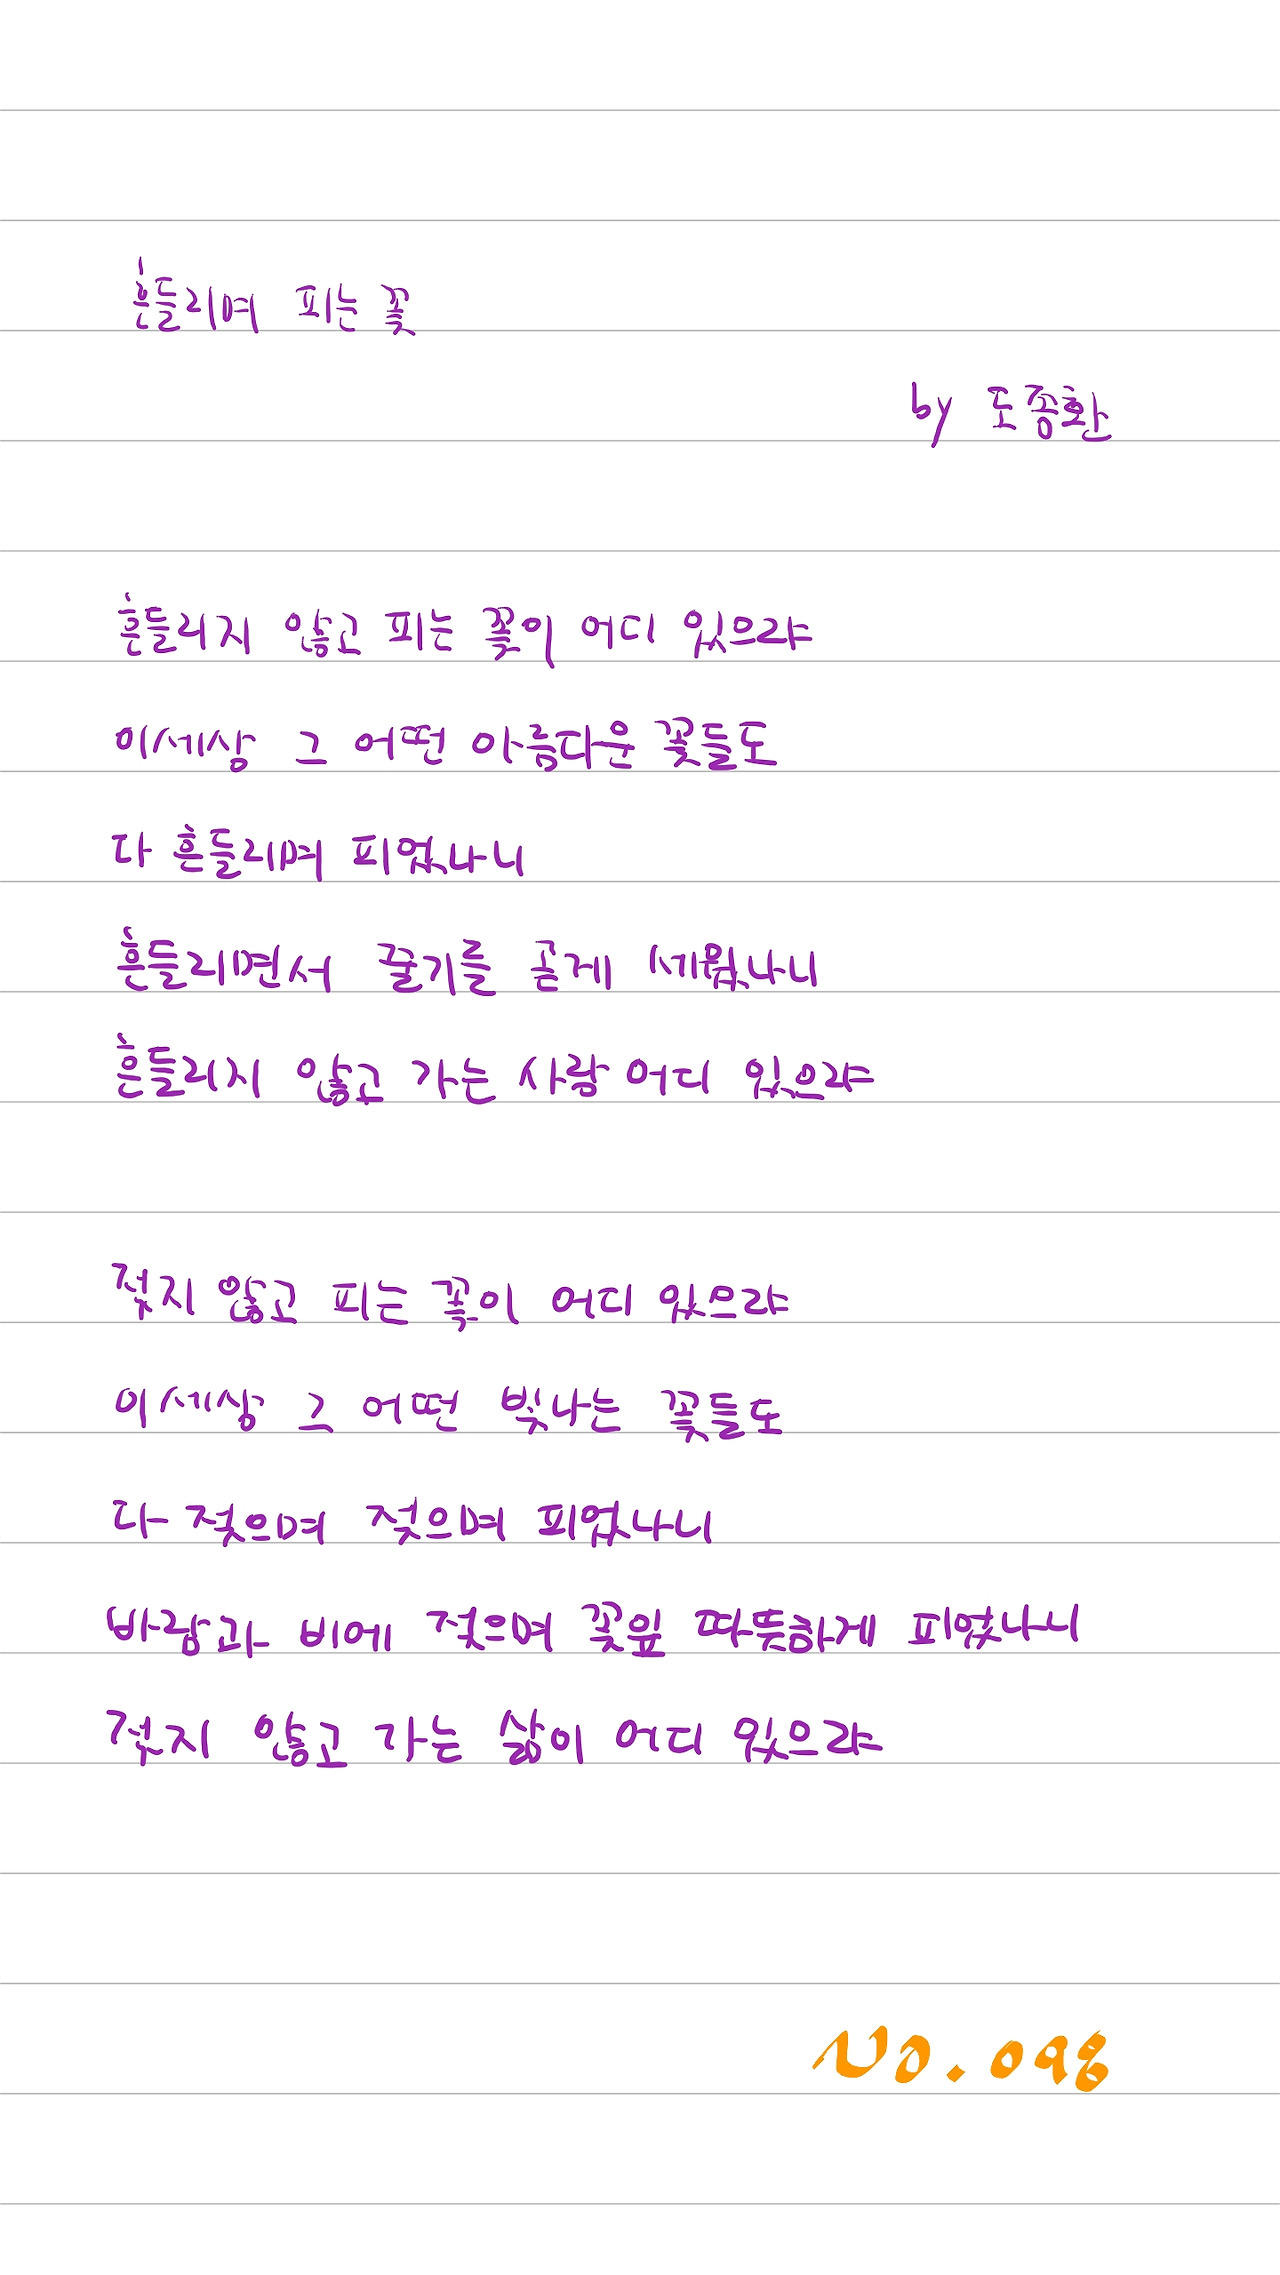 흔들리며 피는 꽃
by 도종환
흔들리지 않고 피는 꽃이 어디 있으랴
이세상 그 어떤 아름다운 꽃들도
다 흔들리며 피었나니
흔들리면서 꿀기를 곧게 세웠나니
흔들리지 않고 가는 사람 어디 있으랴
젖지 않고 피는 꽃이 어디 있으랴
이세상 그 어떤 빛나는 꽃들도
다 젖으며 젖으며 피었나니
바람과 비에 젖으며 꽃잎 따뜻하게 피었나니
젖지 않고 가는 삶이 어디 있으랴
No. 098